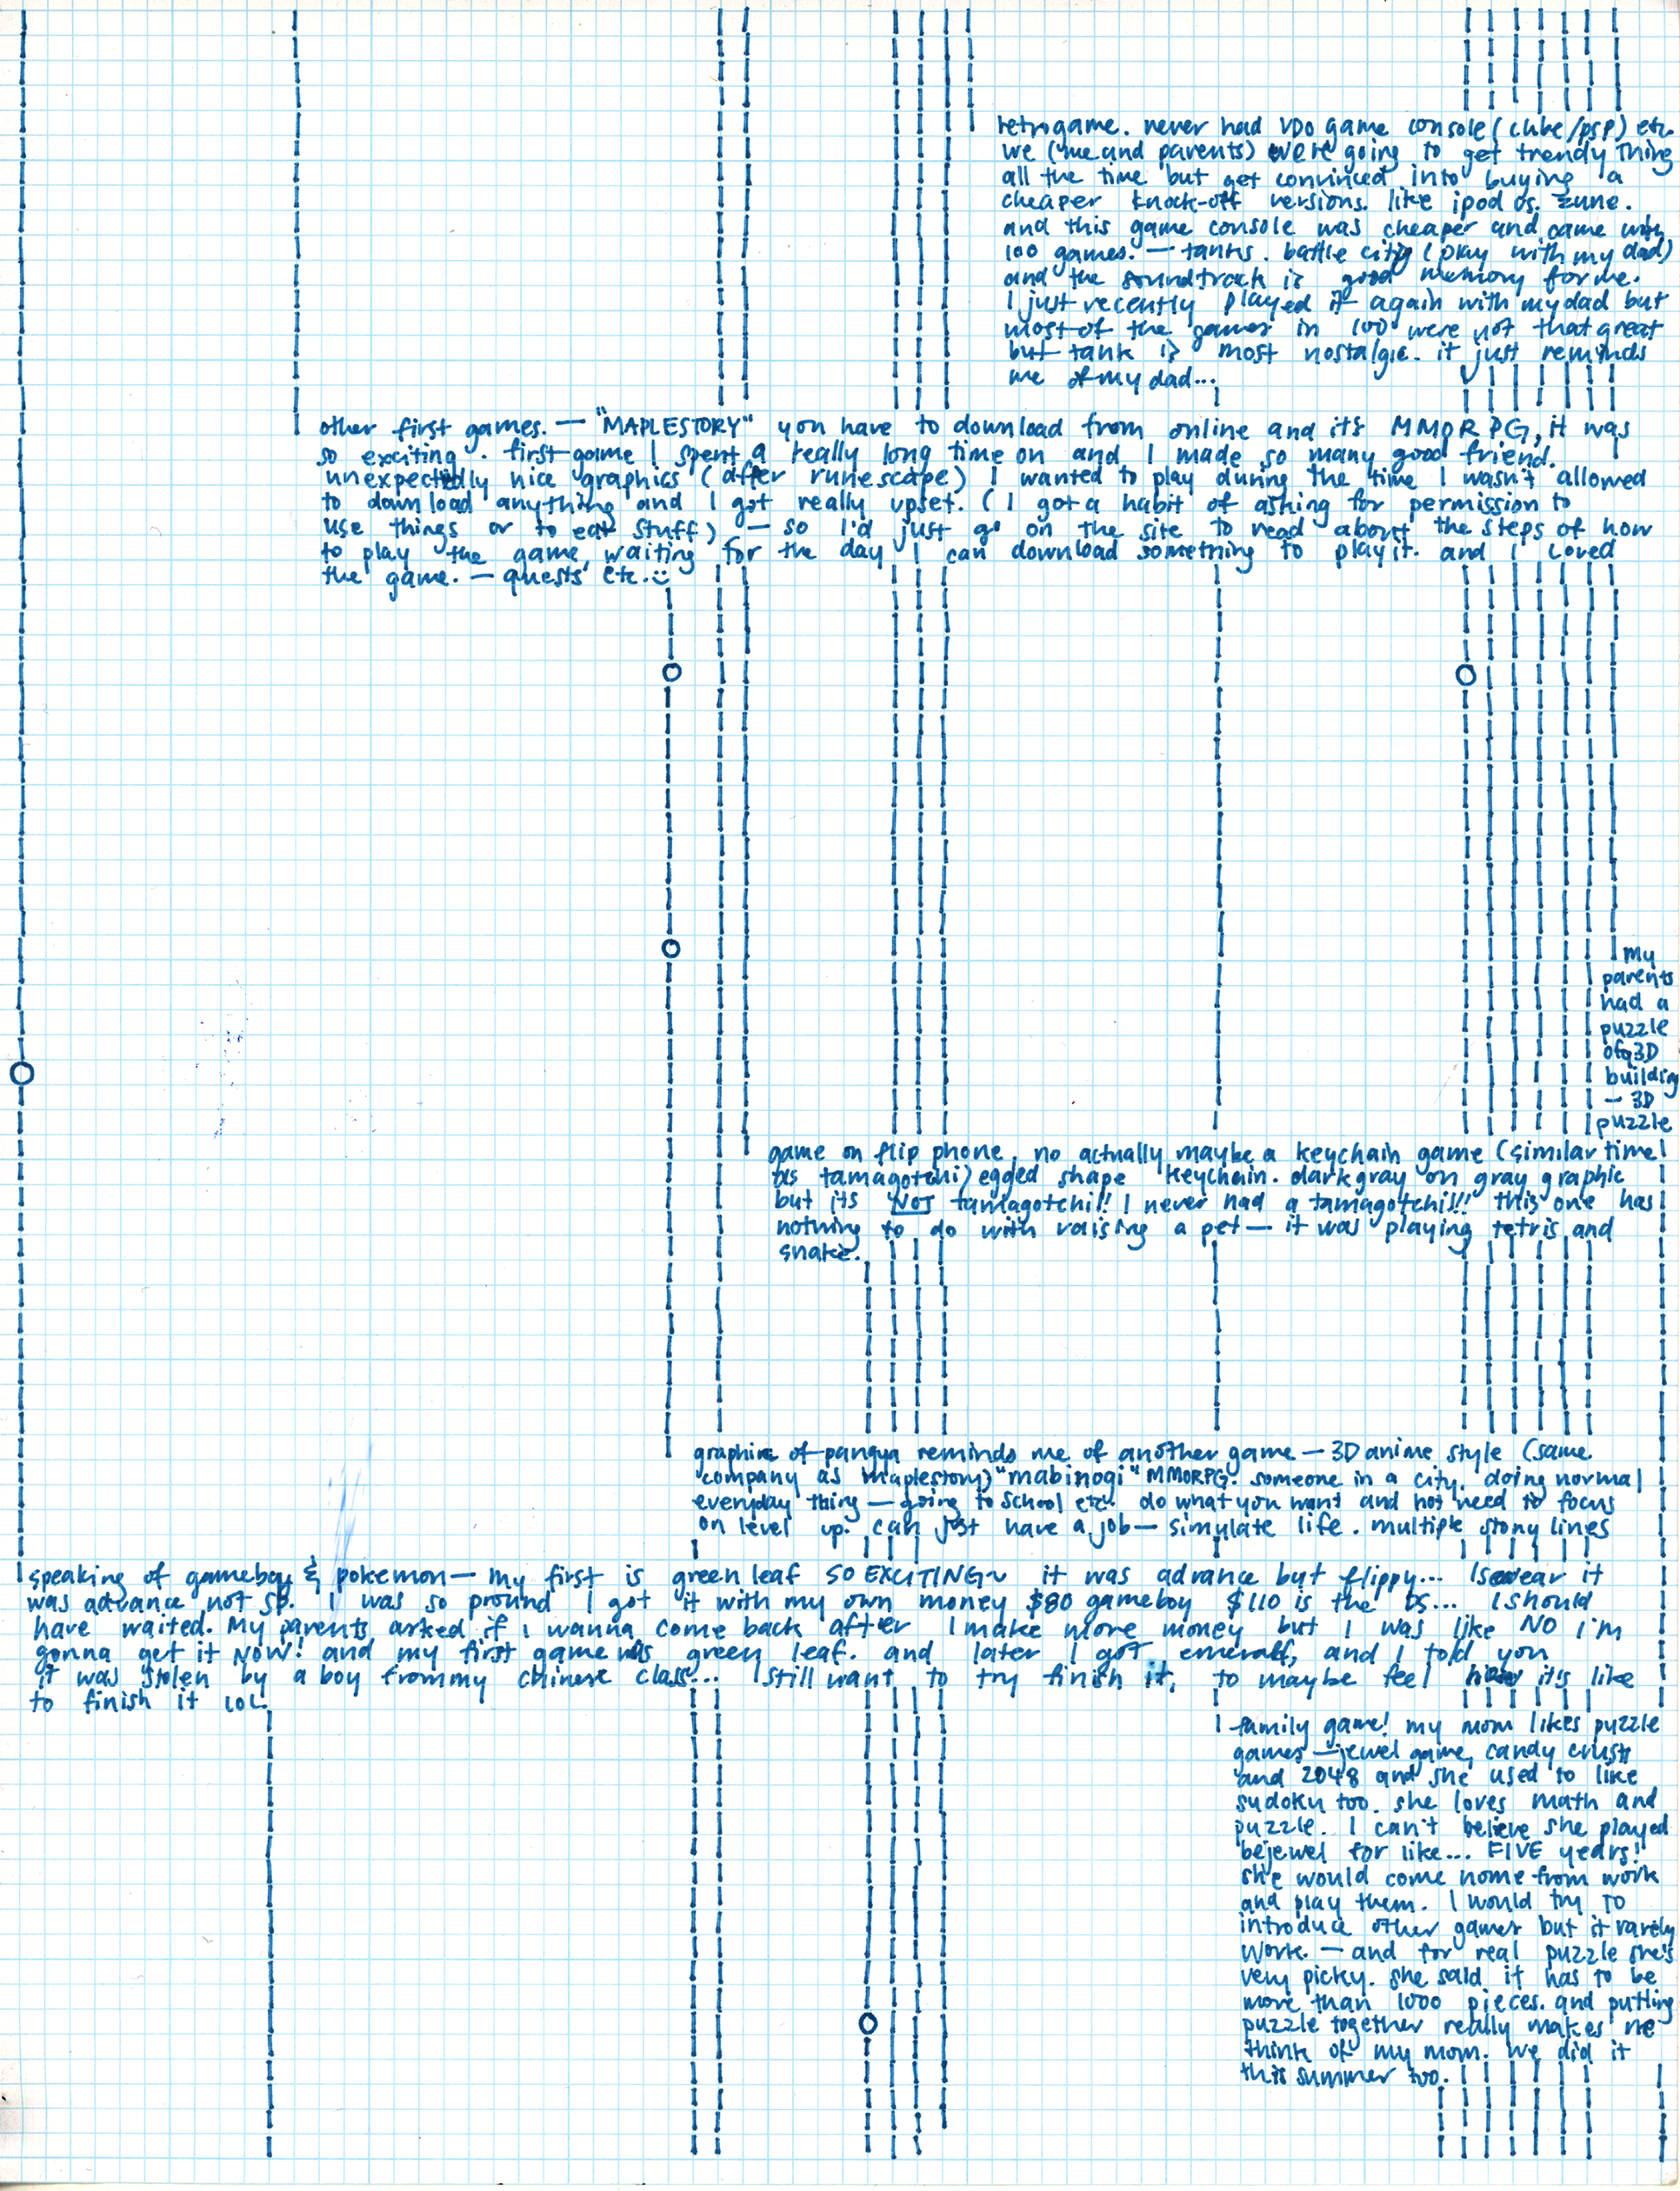 retrogame. never had VDO game console (cube/psp) etc.
we (me and parents) were going to get trendy thing
all the time but get convinced into buying a
cheaper knock-off versions. like ipod vs. zune.
and this game console was cheaper and came with
100 games. — tanks. battle city (play with my dad)
and the soundtrack is good memory for me.
I just recently played it again with my dad but
most of the games in 100 were not that great
but tank is most nostalgic. it just reminds
me of my dad...
other first games. — "MAPLESTORY" you have to download from online and it's MMORPG, it was
so exciting. first game I spent a really long time on and I made so many good friend.
unexpectedly nice graphics (after runescape) I wanted to play during the time I wasn't allowed
to download anything and I got really upset. (I got a habit of asking for permission to
use things or to eat stuff) — so I'd just go on the site to read about the steps of how
to play the game, waiting for the day I can download something to play it. and I loved
the game. — quests etc. :)
my
parents
had a
puzzle
of a 3D
building
— 3D
puzzle
game on flip phone, no actually maybe a keychain game (similar time
as tamagotchi) egged shape keychain. dark gray on gray graphic
but its NOT tamagotchi!! I never had a tamagotchi!!! this one has
nothing to do with raising a pet — it was playing tetris and
snake.
graphic of pangya reminds me of another game — 3D anime style (same
company as maplestory) "mabinogi" MMORPG. someone in a city. doing normal
everyday thing — going to school etc. do what you want and not need to focus
on level up. can just have a job — simulate life. multiple story lines
speaking of gameboy & pokemon — my first is green leaf SO EXCITING~ it was advance but flippy... I swear it
was advance not sp. I was so pround I got it with my own money $80 gameboy $110 is the DS... I should
have waited. My parents asked if I wanna come back after I make more money but I was like NO i'm
gonna get it NOW! and my first game was green leaf. and later I got emerald, and I told you
it was stolen by a boy from my chinese class... I still want to try finish it, to maybe feel how it's like
to finish it lol.
family game! my mom likes puzzle
games — jewel game, candy crush
and 2048 and she used to like
sudoku too. she loves math and
puzzle. I can't believe she played
bejewel for like... FIVE years!
she would come home from work
and play them. I would try to
introduce other games but it rarely
work. — and for real puzzle she's
very picky. she said it has to be
more than 1000 pieces. and putting
puzzle together really makes me
think of my mom. we did it
this summer too.